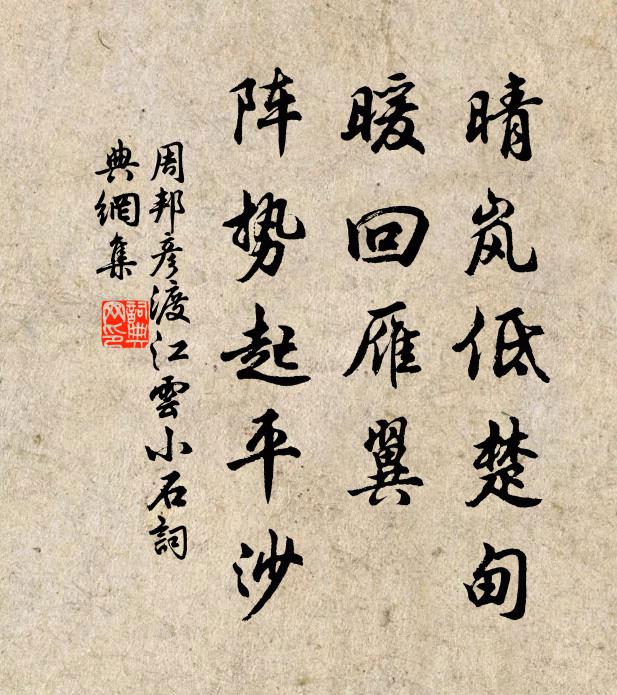 晴岚低楚甸
暖回雁翼
阵势起平沙
周邦彦渡江雲小石詞
典網集
詞典
网印